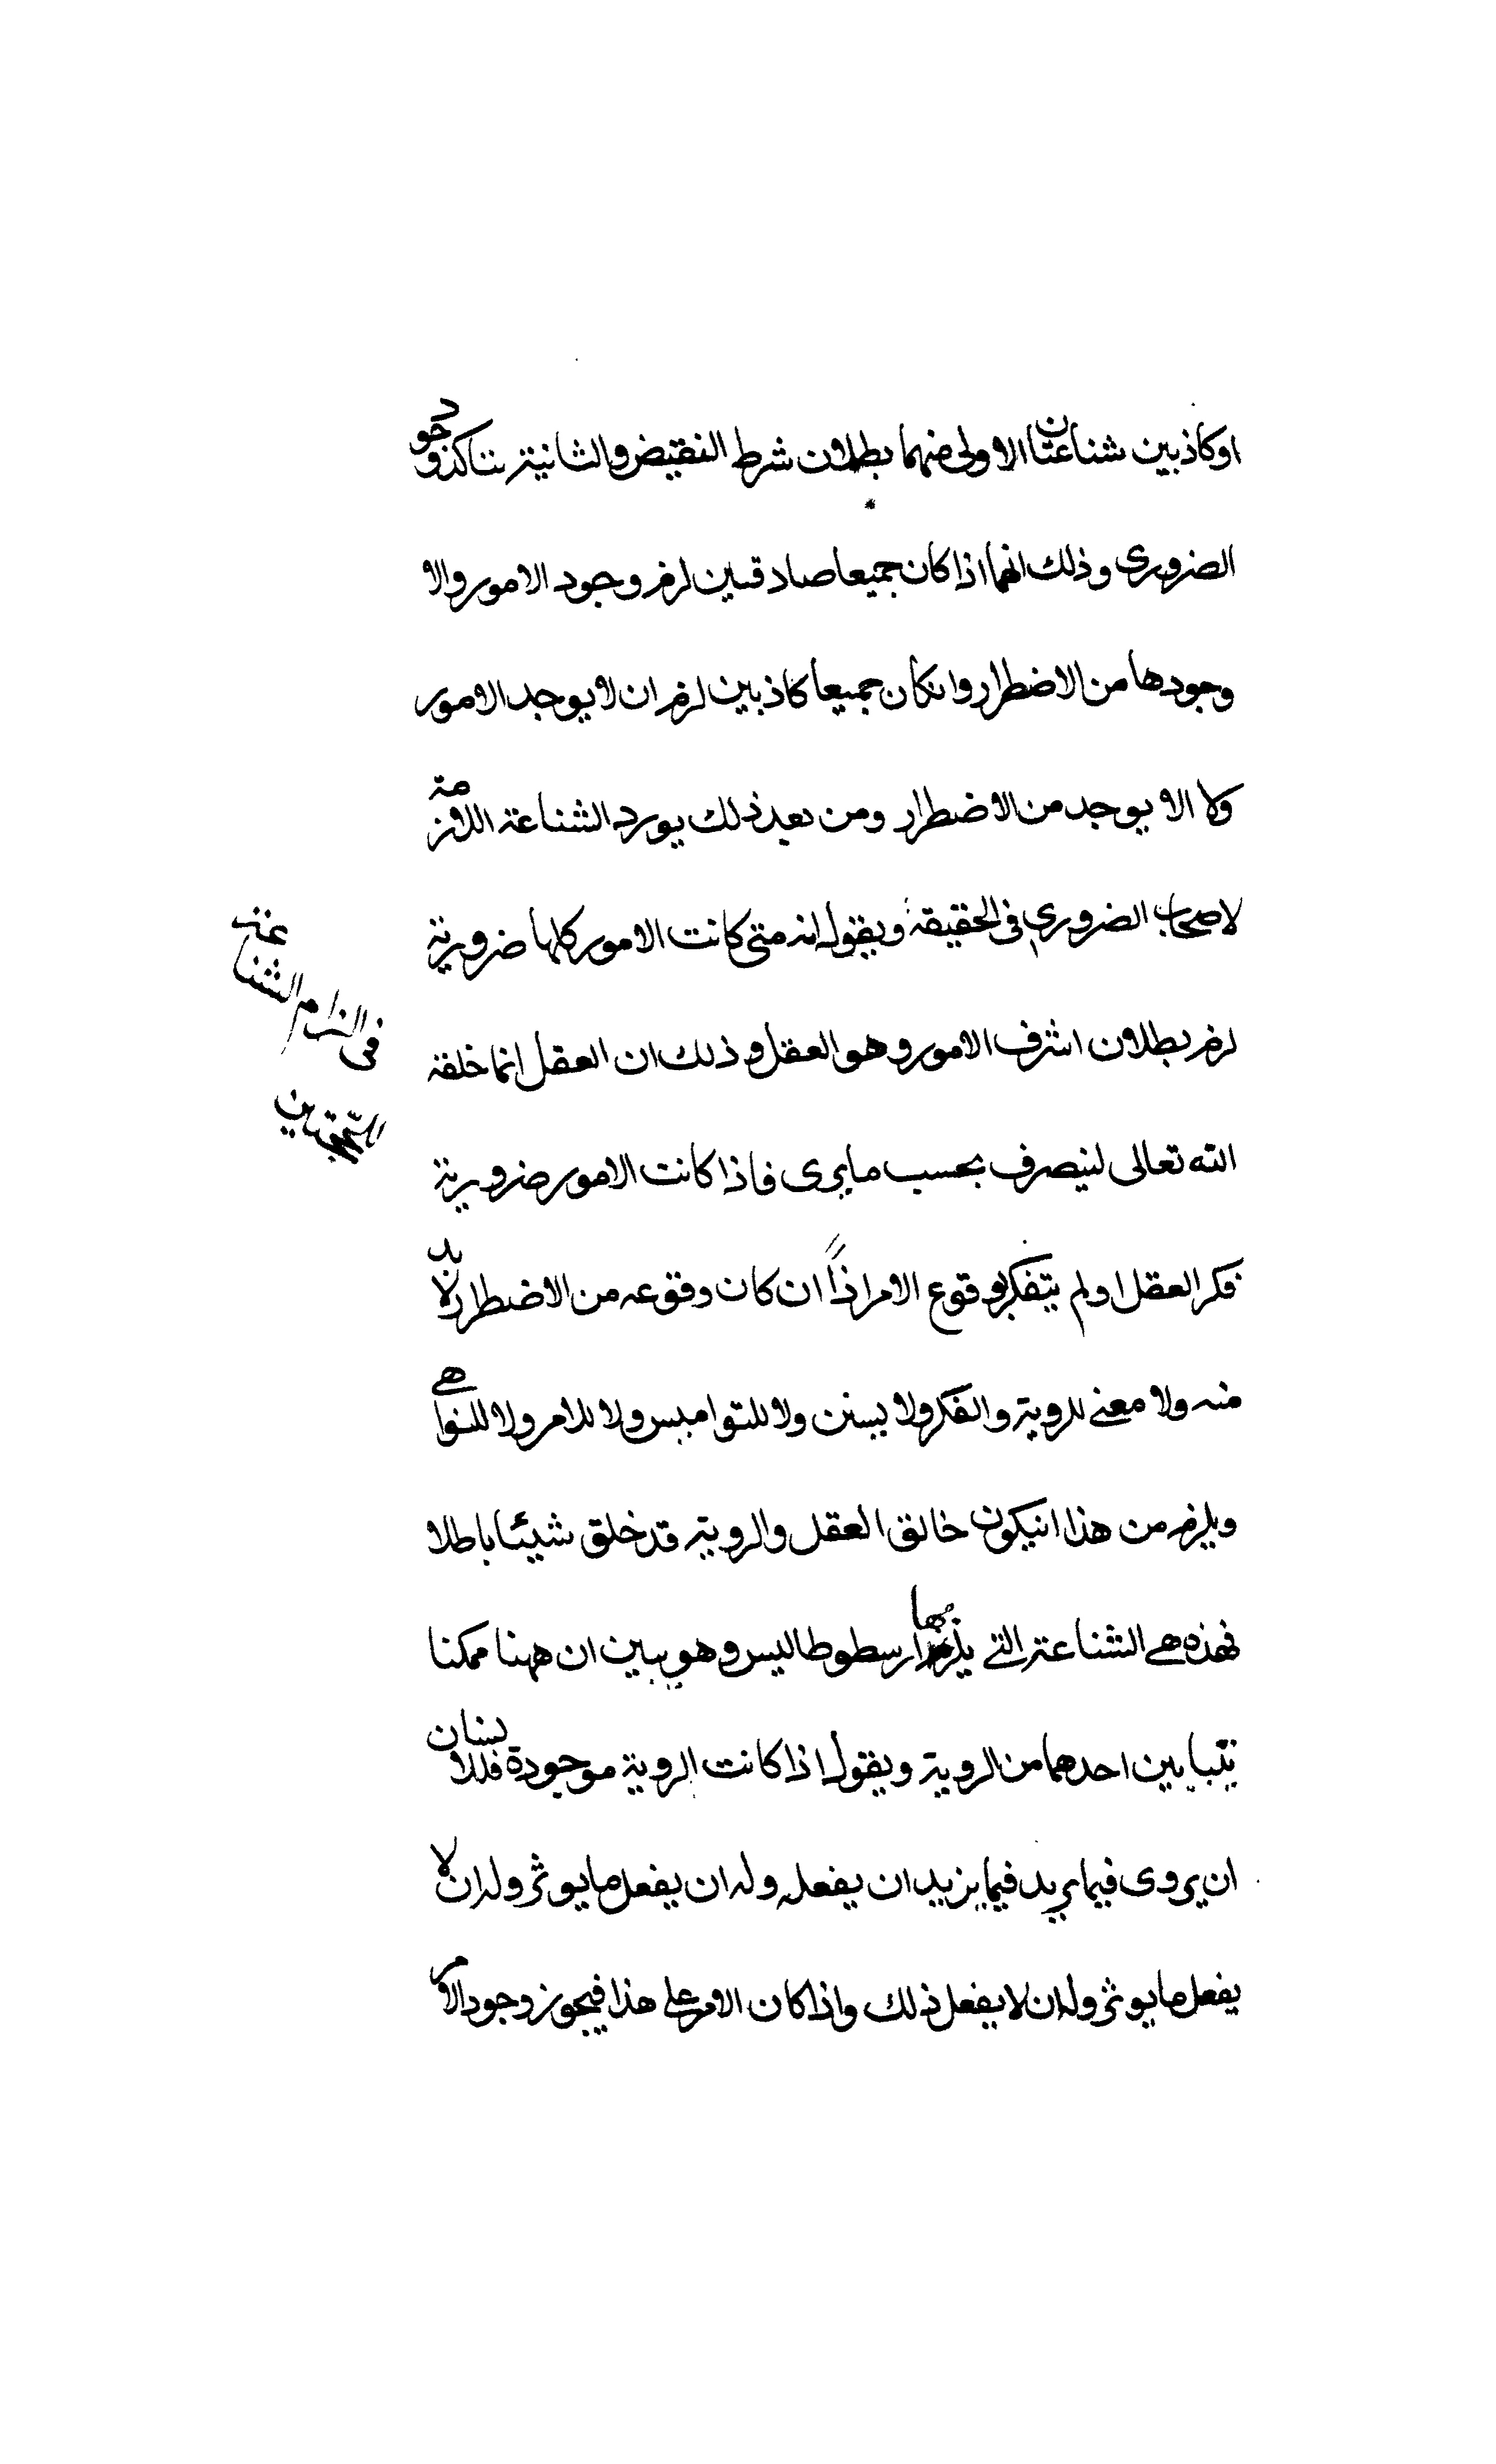 اوكاذبين شناعتان الاولى منهما بطلان شرط النقيض والثانية نتاكد وجود
الضرورى وذلك انهما اذا كان جميعا صادقين لزم وجود الامور والا
وجودها من الاضطرار وانكان جميعا كاذبين لزم ان لا يوجد الامور
ولا الا يوجد من الاضطرار ومن بعد ذلك يورد الشناعة اللازمة
لاصحاب الضرورى فى الحقيقة ويقول انه متى كانت الامور كلها ضرورية
لزم بطلان اشرف الامور وهو العقل وذلك ان العقل انما خلقه
الله تعالى ليتصرف بحسب ما يرى فاذا كانت الامور ضرورية
فكر العقل اولم يتفكر بوقوع الامر اذاً ان كان وقوعه من الاضطرار لابد
منه ولا معنى للروية والفكر ولا بسنن ولا للنواميس ولا للامر ولا للنواهى
ويلزم من هذا انيكون خالق العقل والروية قد خلق شيئا باطلا
فهذه هى الشناعة التى يلزمها ارسطوطاليس وهو يبين ان ههنا ممكنا
بتبايين احدهما من الروية ويقول اذا كانت الروية موجودة فللانسان
ان يروى فيما يريد فيما يريد ان يفعله وله ان يفعل ما يوثر وله ان لا
يفعل ما يوثر وله ان لا يفعل ذلك واذا كان الامر على هذا فيجوز وجود الامر
فى الزام الشناعة